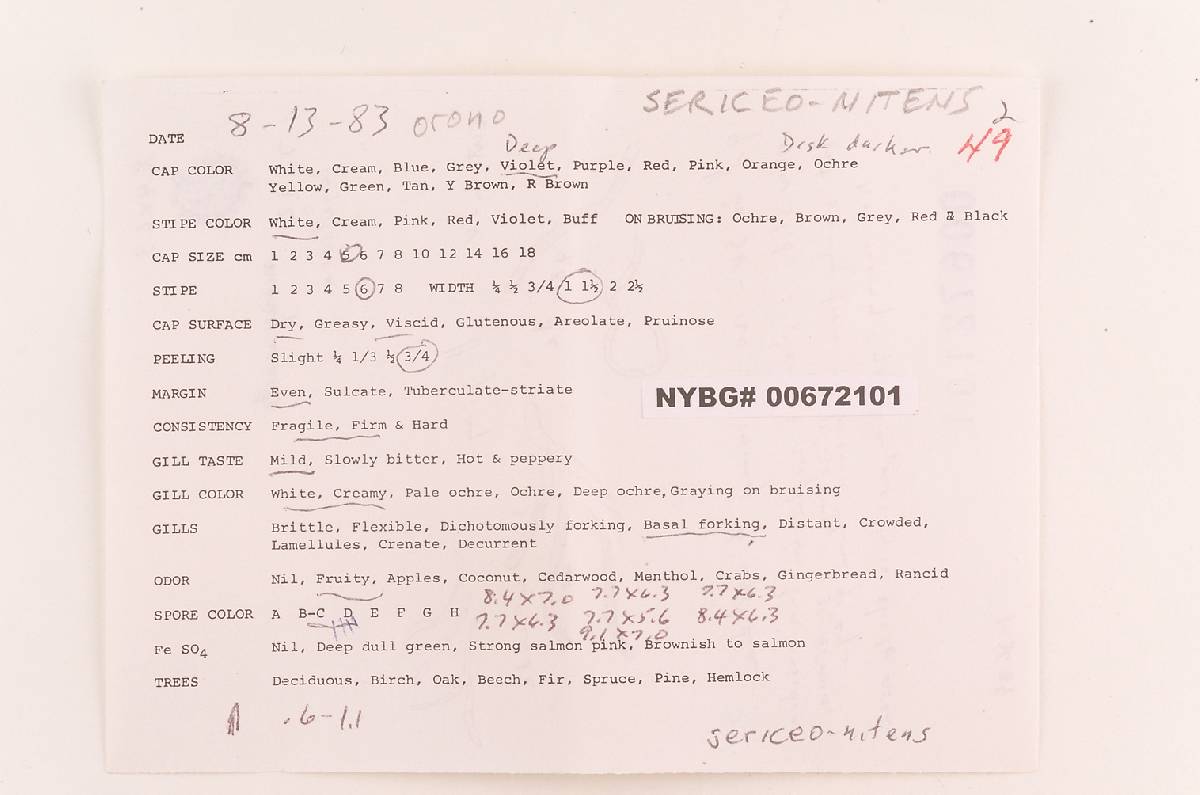 SERICEO-NITENS 2
DATE 8-13-83 orono
Deep Disk darker 49
CAP COLOR White, Cream, Blue, Grey, Violet, Purple, Red, Pink, Orange, Ochre
Yellow, Green, Tan, Y Brown, R Brown
STIPE COLOR White, Cream, Pink, Red, Violet, Buff ON BRUISING: Ochre, Brown, Grey, Red & Black
CAP SIZE cm 1 2 3 4 5 6 7 8 10 12 14 16 18
STIPE 1 2 3 4 5 6 7 8 WIDTH ¼ ½ 3/4 1 1½ 2 2½
CAP SURFACE Dry, Greasy, Viscid, Glutenous, Areolate, Pruinose
PEELING Slight ¼ 1/3 ½ 3/4
MARGIN Even, Sulcate, Tuberculate-striate
NYBG# 00672101
CONSISTENCY Fragile, Firm & Hard
GILL TASTE Mild, Slowly bitter, Hot & peppery
GILL COLOR White, Creamy, Pale ochre, Ochre, Deep ochre, Graying on bruising
GILLS Brittle, Flexible, Dichotomously forking, Basal forking, Distant, Crowded,
Lamellules, Crenate, Decurrent
ODOR Nil, Fruity, Apples, Coconut, Cedarwood, Menthol, Crabs, Gingerbread, Rancid
8.4 x 7.0 7.7 x 6.3 7.7 x 6.3
SPORE COLOR A B-C D E F G H 7.7 x 6.3 7.7 x 5.6 8.4 x 6.3
9.1 x 7.0
Fe SO4 Nil, Deep dull green, Strong salmon pink, Brownish to salmon
TREES Deciduous, Birch, Oak, Beech, Fir, Spruce, Pine, Hemlock
.6-1.1
sericeo-nitens